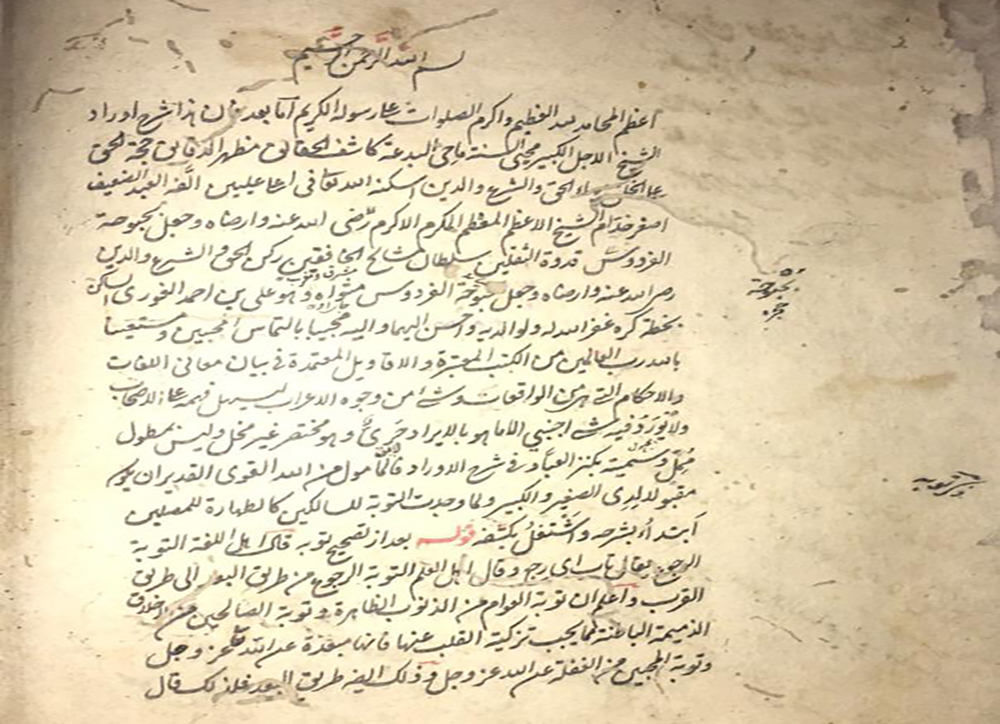 بسم الله الرحمن الرحيم
اعظم المحامد لله العظيم واكرم الصلوات علے رسوله الكريم اما بعد فان هذا شرح اوراد
الشيخ الاجل الكبير محيى السنة ماحى البدعة كاشف الحقائق مظهر الدقائق حجة الحق
على الخلق بهاء الحق والشرع والدين اسكنه الله تعا فى اعلى عليين الفه العبد الضعيف
اصغر خدام الشيخ الاعظم المعظم المكرم الاكرم رضى الله عنه وارضاه وجعل بحبوحة
الفردوس قدوة الثقلين سلطان مشايخ الخافقين ركن الحق والشرع والدين
رضى الله عنه وارضاه وجعل بحبوحة الفردوس مثواه وهو على بن احمد الغورى الساكن
بخطة كره غفر الله له ولوالديه واحسن اليهما واليه مجيبا بالتماس المحبين ومستعينا
بالله رب العالمين من الكتب المعتبرة والاقاويل المعتمدة فى بيان معانى اللغات
والاحكام التى من الواقعات وشئ من وجوه الاعراب ليسهل فهمه على الاصحاب
ولا نورد فيه شئ اجنبى الا ما هو بالايراد حرى وهو مختصر غير مخل وليس بمطول
ممل وسميته بكنز العباد فى شرح الاوراد فالمامول من الله القوى القدير ان يكون
مقبولا لدى الصغير والكبير ولما وجدت التوبة للسالكين كالطهارة للمصلين
ابتدأ بشرحه واشتغل بكشفه قوله بعد از تصحيح توبه قال اهل اللغة التوبة
الرجوع يقال تاب اى رجع وقال اهل العلم التوبة الرجوع من طريق البعد الى طريق
القرب واعلم ان توبة العوام من الذنوب الظاهرة وتوبة الصالحين من اخلاق
الذميمة الباطنة فما يجب تزكية القلب عنها فانها مبعدة عن الله عز وجل
وتوبة المحبين من الغفلة عن الله عز وجل وذلك ايضه طريق البعد فلذلك قال
بحبوحة